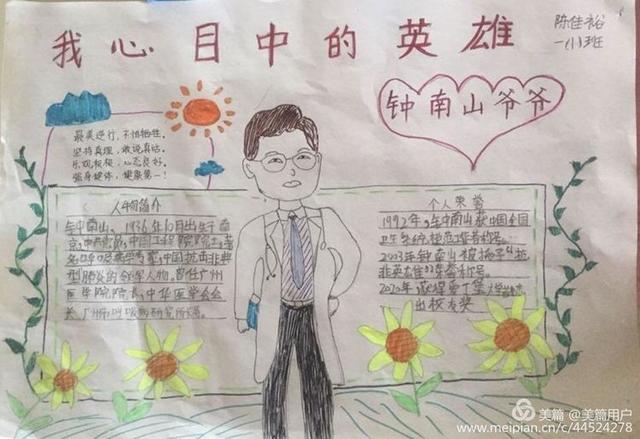 我心目中的英雄
陈佳裕
一(1)班
钟南山爷爷
最美逆行，不怕牺牲，
坚持真理，敢说真话。
乐观积极，心态良好。
强身健体，健康第一！
人物简介
钟南山，1936年10月出生于南
京，中共党员，中国工程院院士，著
名呼吸病学专家，中国抗击非典
型肺炎的领军人物。曾任广州
医学院院长，中华医学会会
长
个人荣誉
1992年，钟南山获中国全国
卫生系统模范工作者称号。
2003年钟南山被授予"抗
非英雄"
2020年获得爱丁堡大学
出校友奖
美篇 @美篇用户
www.meipian.cn/c/44524278